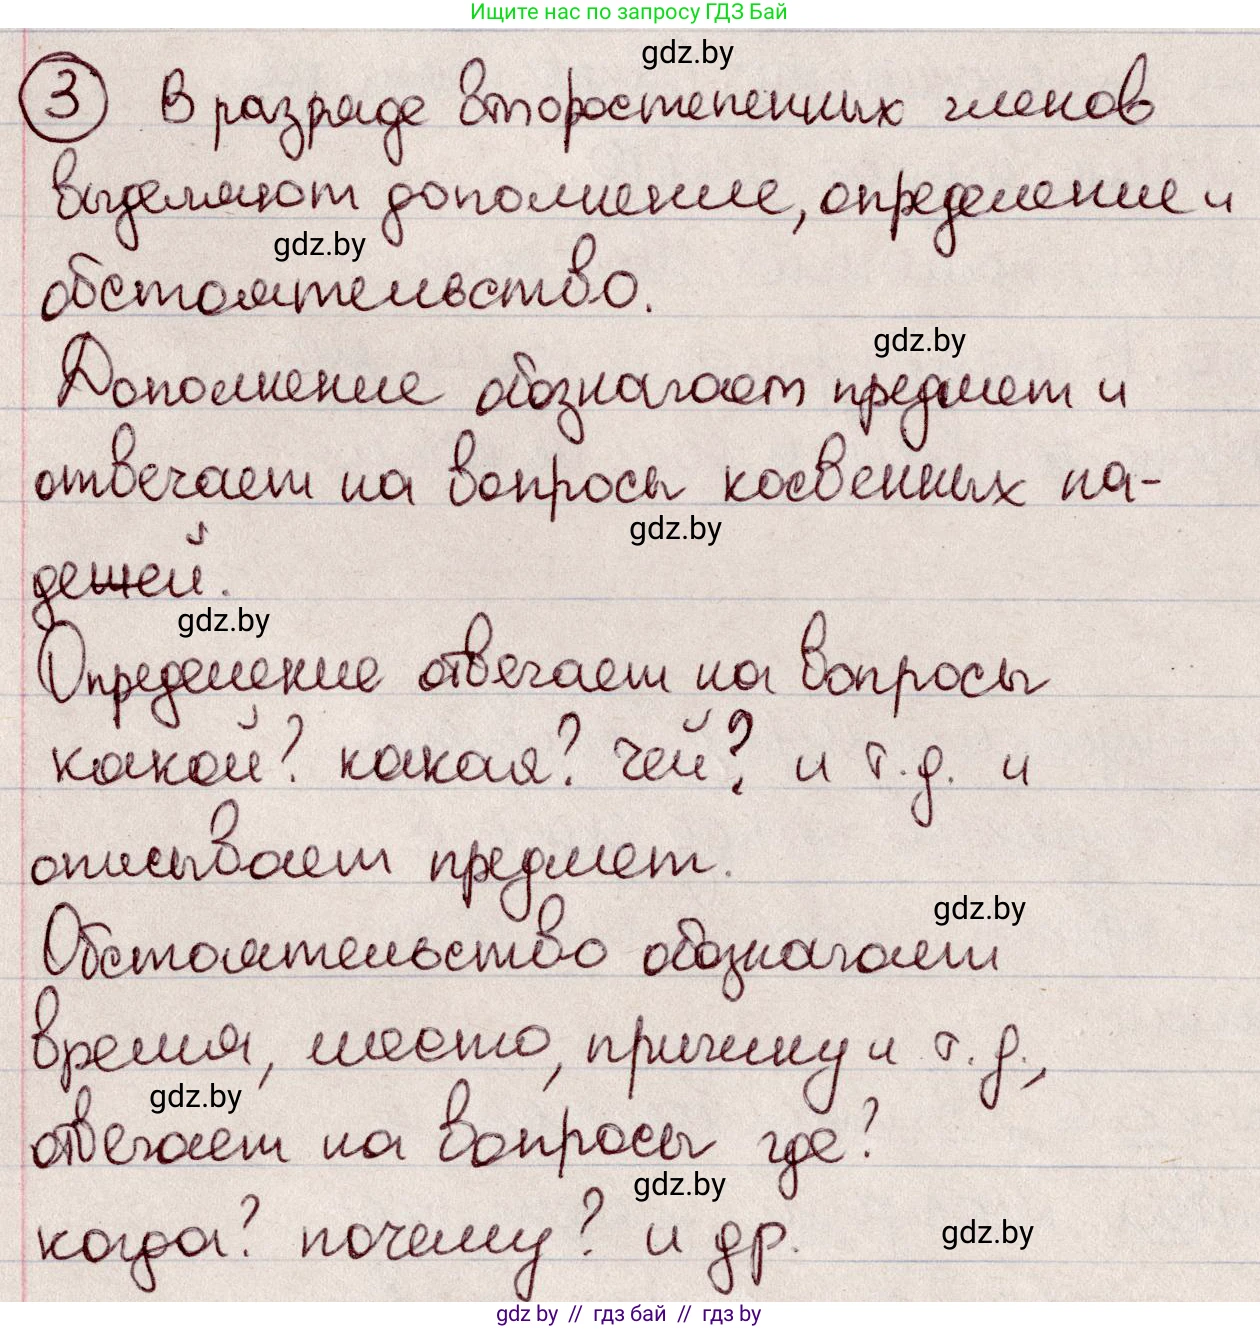 Ищите нас по запросу ГДЗ Бай
gdz.by
3 В разряде второстепенных членов
выделяют дополнение, определение и
gdz.by
обстоятельство.
gdz.by
Дополнение обозначает предмет и
отвечает на вопросы косвенных па-
gdz.by
дежей.
gdz.by
Определение отвечает на вопросы
какой? какая? чей? и т.д. и
описывает предмет.
gdz.by
Обстоятельство обозначает
время, место, причину и т.д.,
gdz.by
отвечает на вопросы где?
gdz.by
когда? почему? и др.
gdz.by
gdz by // гдз бай // гдз by